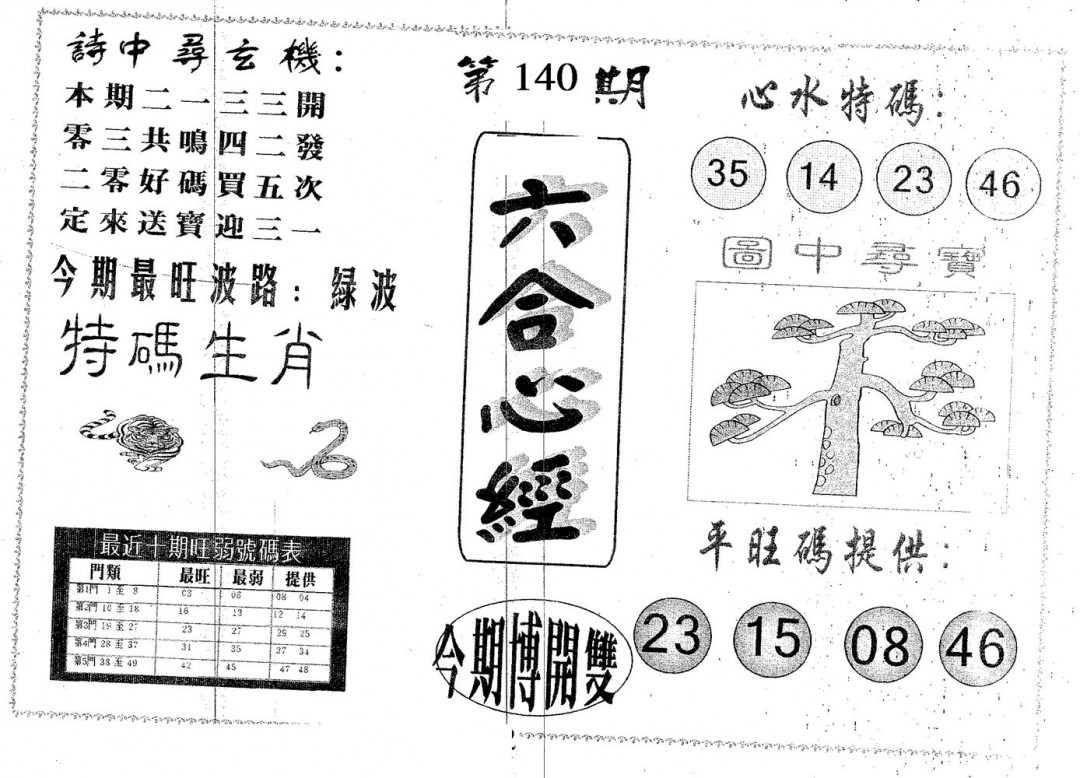 詩中尋玄機：
本期二一三三開
零三共鳴四二發
二零好碼買五次
定來送寶迎三一
今期最旺波路：綠波
特碼生肖
最近十期旺弱號碼表
門類 最旺 最弱 提供
第1門 1 至 8 03 06 08 04
第2門 10 至 18 16 13 12 14
第3門 19 至 27 23 27 25
第4門 28 至 37 31 35 37 34
第5門 38 至 49 42 45 47 48
第140期
六合心經
今期博開雙
心水特碼：
35 14 23 46
圖中尋寶
平旺碼提供：
23 15 08 46